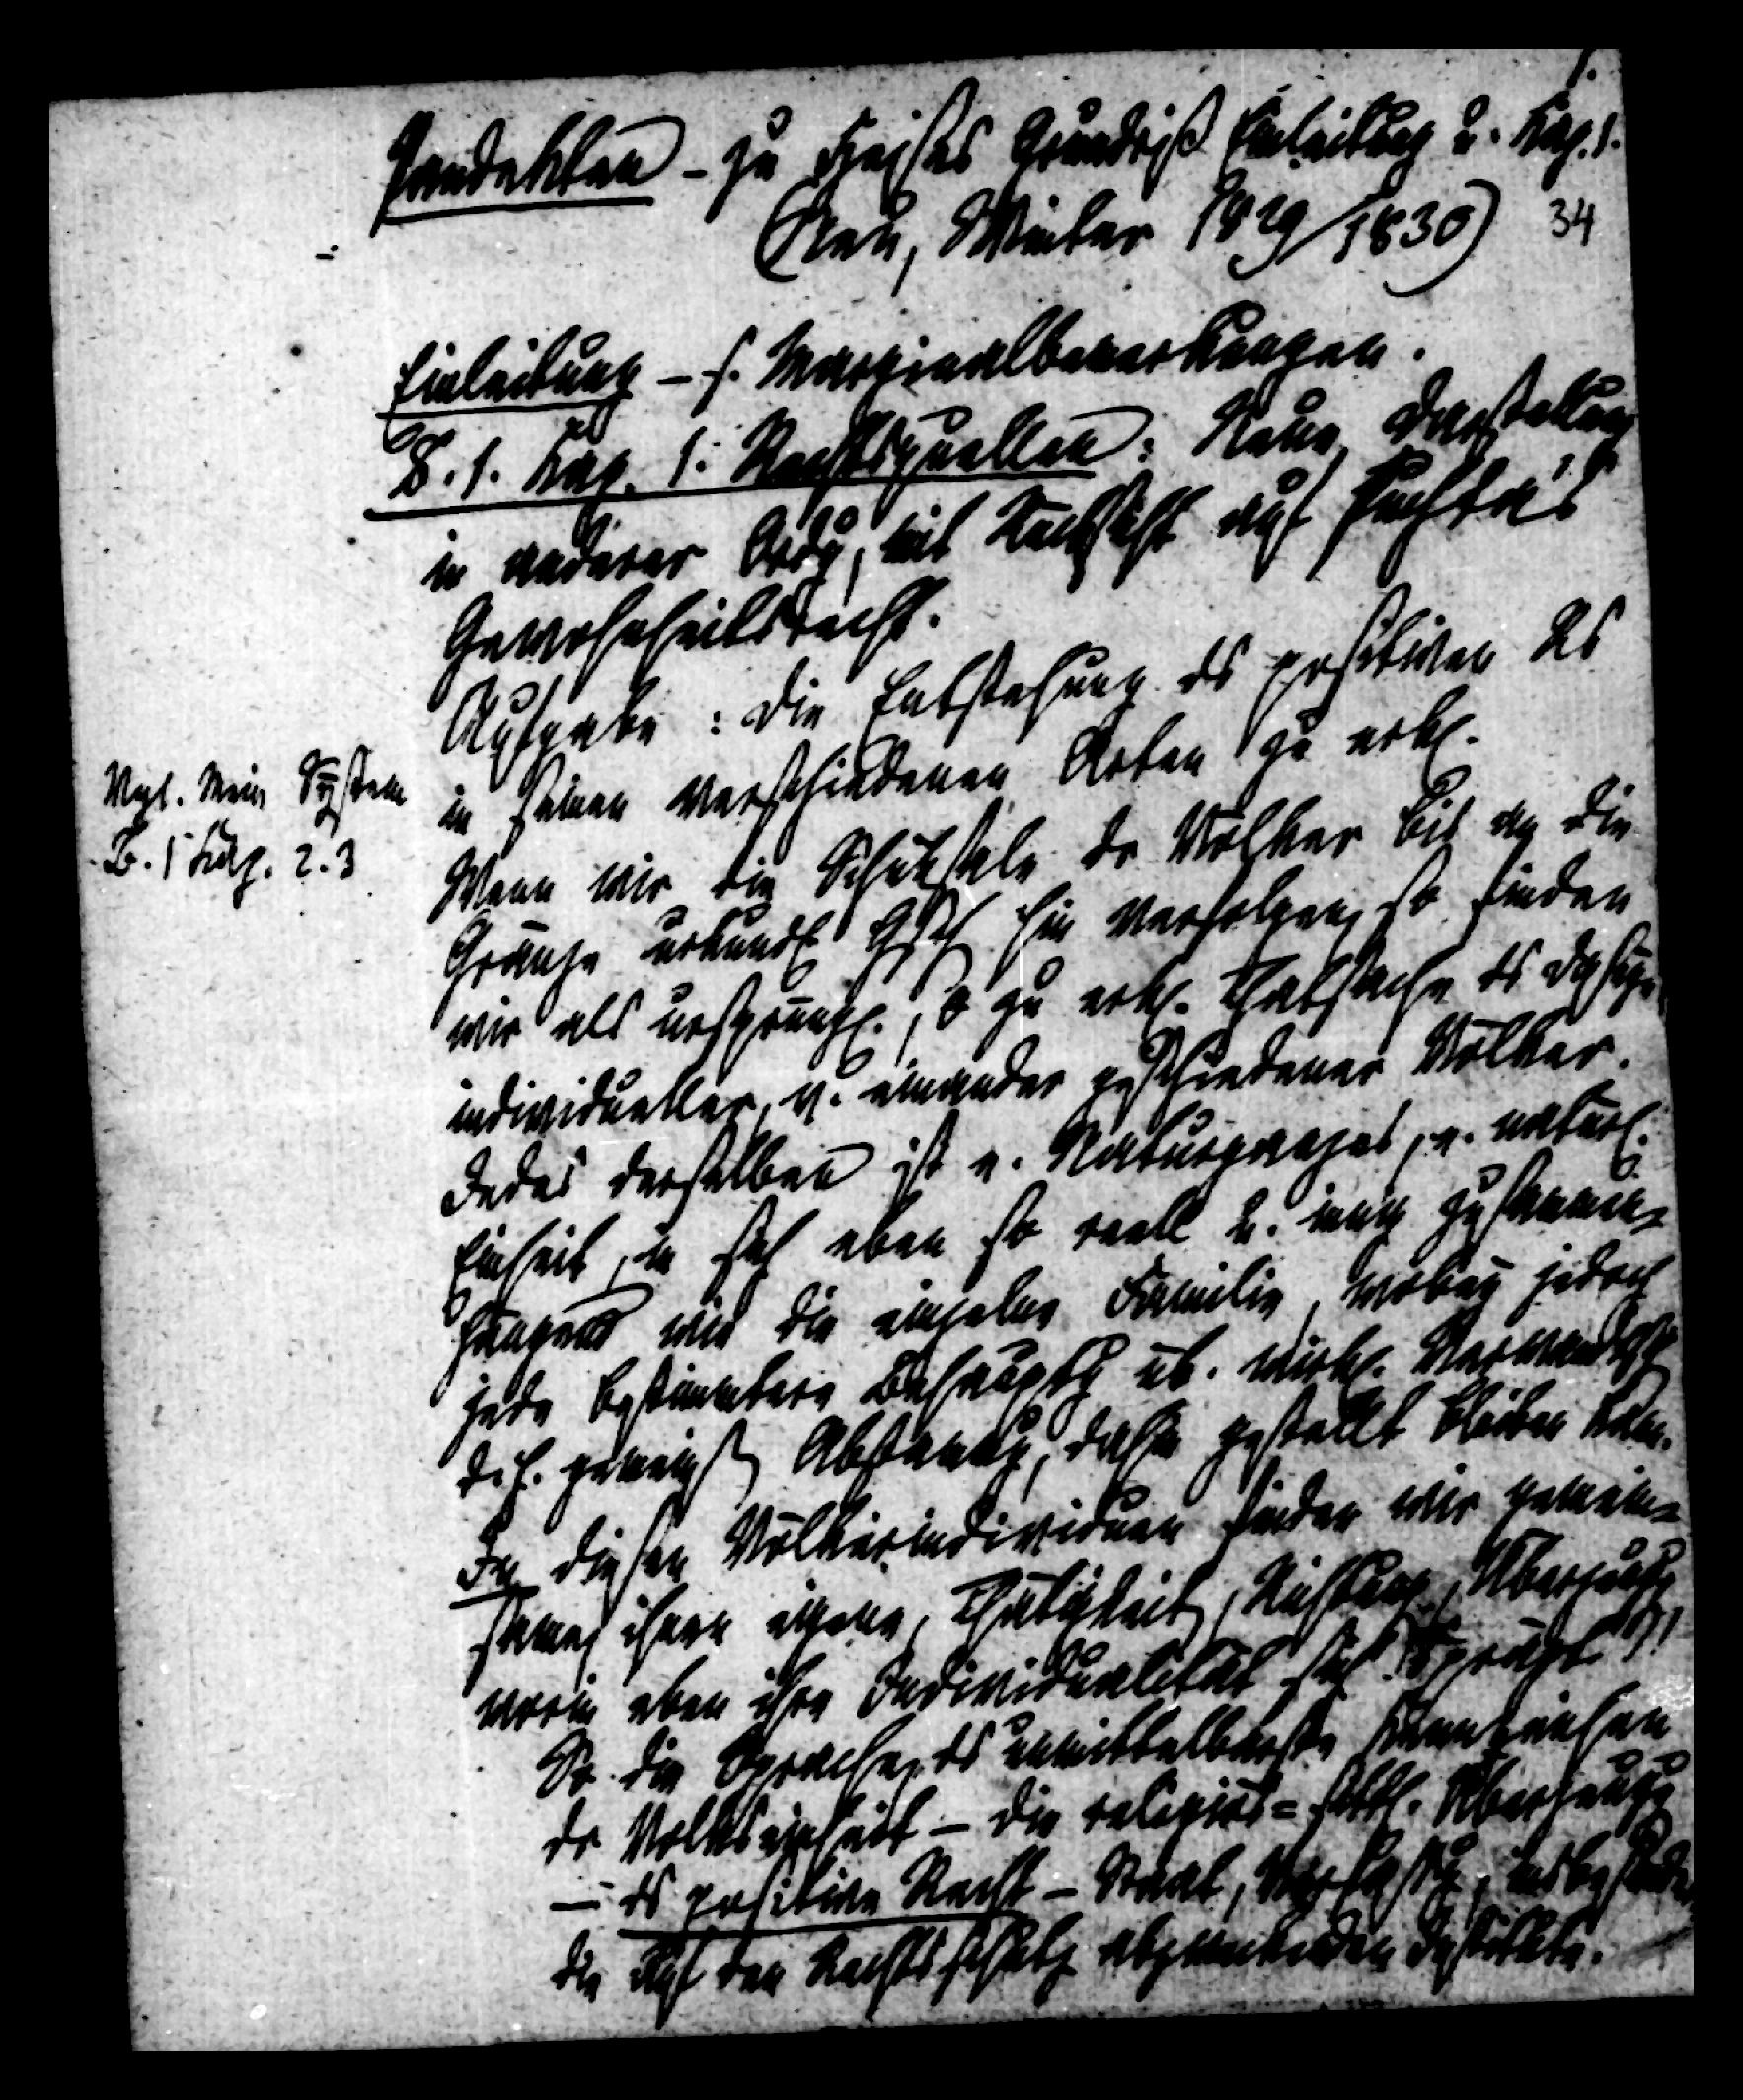 1.
Pandekten - zu Heises Grundriß Einleitung u. Kap. 1.
(Neu, Winter 1829/1830)
34
Einleitung - s. Marginalbemerkungen.
B. 1. Kap. 1: Rechtsquellen: Neue Darstellung
in anderer Ordg, mit Rücksicht auf Puchta's
Gewohnheitsrecht.
Aufgabe: die Entstehung ds positiven Rs
in seinen verschiedenen Arten zu erkl.
Vgl. mein System
B. 1 Kap. 2.3
Wenn wir die Schicksale dr Völker bis an die
Gränze urkundl Gsch hin verfolgen, so finden
wir als ursprüngl., zu erkl. Thatsache ds Daseyn
individueller, v. einander geschiedener Völker.
Jedes derselben ist e. Naturganzes, e. natürl.
Einheit, in sich eben so reell u. innig zusammen=
hängend wie die einzelne Familie, wobey jedoch
jede bestimmtere Behauptg üb. wirkl. Verwandtsch
d. h. gemeins Abstammg, dahin gestellt bleiben kann.
In diesen Völkerindividuen finden wir gemein=
same ihnen eigene, Thätigkeit, Richtung, Überzeugg
worin eben ihre Individualität sich ausprägt
So die Sprache, ds unmittelbarste Kennzeichen
dr Volkseinheit - die religiös=sittl. Überzeugg
- ds positive Recht - Staat, Verfassg, insbesondre
die auf den Rechtsschutz abzweckenden Institute.